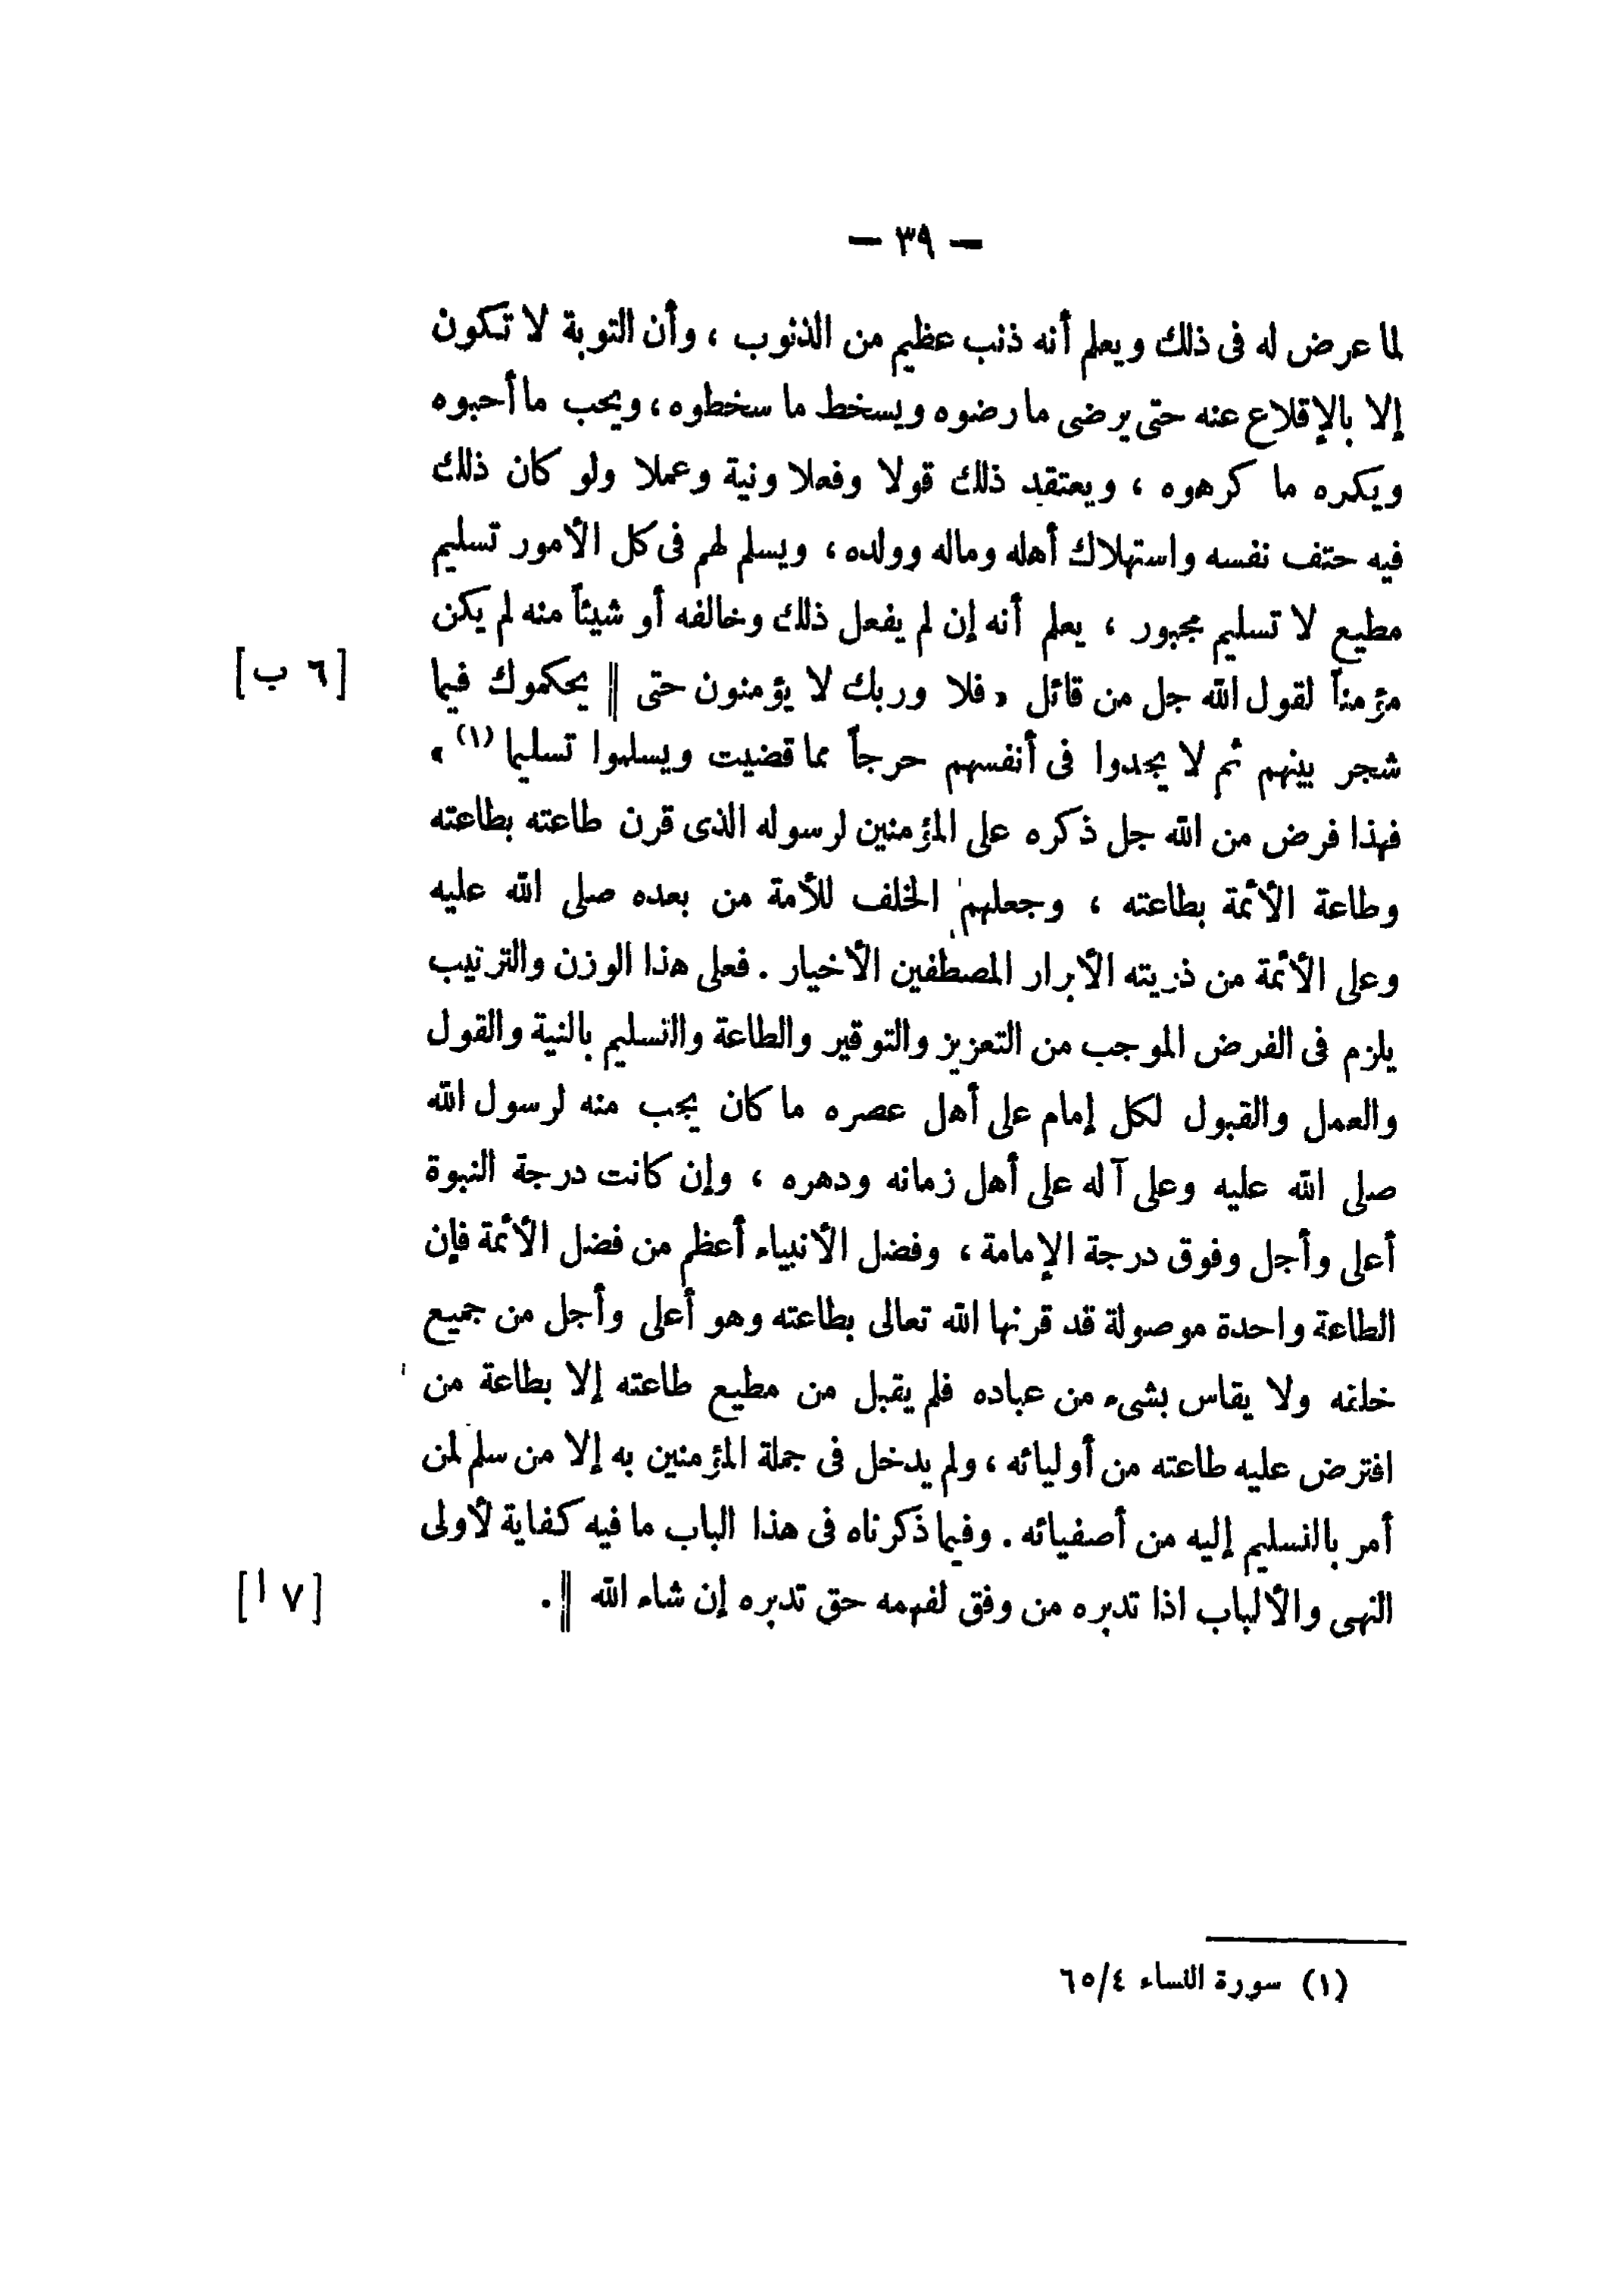 — ٣٩ —
لما عرض له فى ذلك ويعلم أنه ذنب عظيم من الذنوب ، وأن التوبة لا تكون
إلا بالإقلاع عنه حتى يرضى ما رضوه ويسخط ما سخطوه ، ويحب ما أحبوه
ويكره ما كرهوه ، ويعتقد ذلك قولا وفعلا ونية وعملا ولو كان ذلك
فيه حتف نفسه واستهلاك أهله وماله وولده ، ويسلم لهم فى كل الأمور تسليم
مطيع لا تسليم مجبور ، يعلم أنه إن لم يفعل ذلك وخالفه أو شيئاً منه لم يكن
مؤمناً لقول الله جل من قائل « فلا وربك لا يؤمنون حتى || يحكموك فيما [٦ ب]
شجر بينهم ثم لا يجدوا فى أنفسهم حرجاً مما قضيت ويسلموا تسليما (١) »
فهذا فرض من الله جل ذكره على المؤمنين لرسوله الذى قرن طاعته بطاعته
وطاعة الأئمة بطاعته ، وجعلهم الخلف للأمة من بعده صلى الله عليه
وعلى الأئمة من ذريته الأبرار المصطفين الأخيار . فعلى هذا الوزن والترتيب
يلزم فى الفرض الموجب من التعزيز والتوقير والطاعة والتسليم بالنية والقول
والعمل والقبول لكل إمام على أهل عصره ما كان يجب منه لرسول الله
صلى الله عليه وعلى آله على أهل زمانه ودهره ، وإن كانت درجة النبوة
أعلى وأجل وفوق درجة الإمامة ، وفضل الأنبياء أعظم من فضل الأئمة فإن
الطاعة واحدة موصولة قد قرنها الله تعالى بطاعته وهو أعلى وأجل من جميع
خلقه ولا يقاس بشىء من عباده فلم يقبل من مطيع طاعته إلا بطاعة من
افترض عليه طاعته من أوليائه ، ولم يدخل فى جملة المؤمنين به إلا من سلم لمن
أمر بالتسليم إليه من أصفيائه . وفيما ذكرناه فى هذا الباب ما فيه كفاية لأولى
النهى والألباب اذا تدبره من وفق لفهمه حق تدبره إن شاء الله || . [٧ ا]
(١) سورة النساء ٤/٦٥